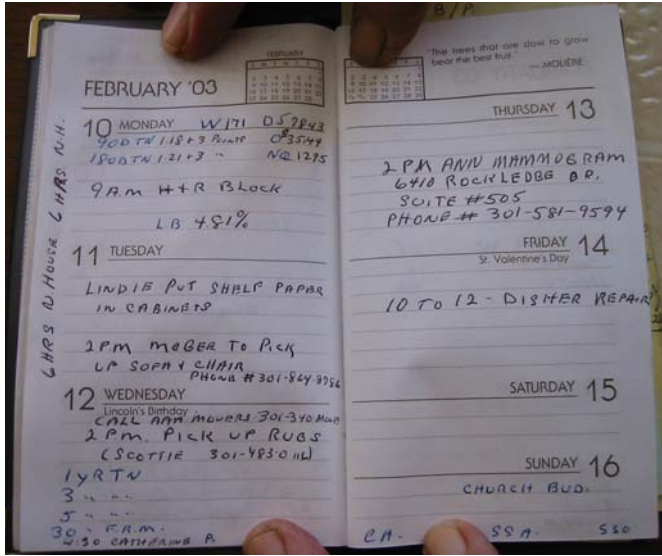 B/P
FEBRUARY '03
FEBRUARY
10 MONDAY W171 D57843
90D TN 1.18+3 Points 03544
180D TN 1.21+3 " NQ 1295
9 A.M H+R BLOCK
LB 4.81%
11 TUESDAY
LINDIE PUT SHELF PAPER
IN CABINETS
2 P.M MOBER TO PICK
UP SOFA & CHAIR
PHONE # 301-864-8786
12 WEDNESDAY
Lincoln's Birthday
CALL AAA MOVERS 301-340 MOVE
2 PM. PICK UP RUGS
(SCOTTIE 301-483-0116)
1 YR TN
3 " "
5 " "
30 " F.R.M.
4:30 CATHERINE P.
6 HRS N. HOUSE 6 HRS. N.H.
"The trees that are slow to grow
bear the best fruit."
— MOLIÈRE
THURSDAY 13
2 PM ANN MAMMOGRAM
6410 ROCKLEDGE DR.
SUITE #505
PHONE # 301-581-9594
FRIDAY 14
St. Valentine's Day
10 TO 12 - DISHER REPAIR
SATURDAY 15
SUNDAY 16
CHURCH BUD.
CA. SSA. SSO